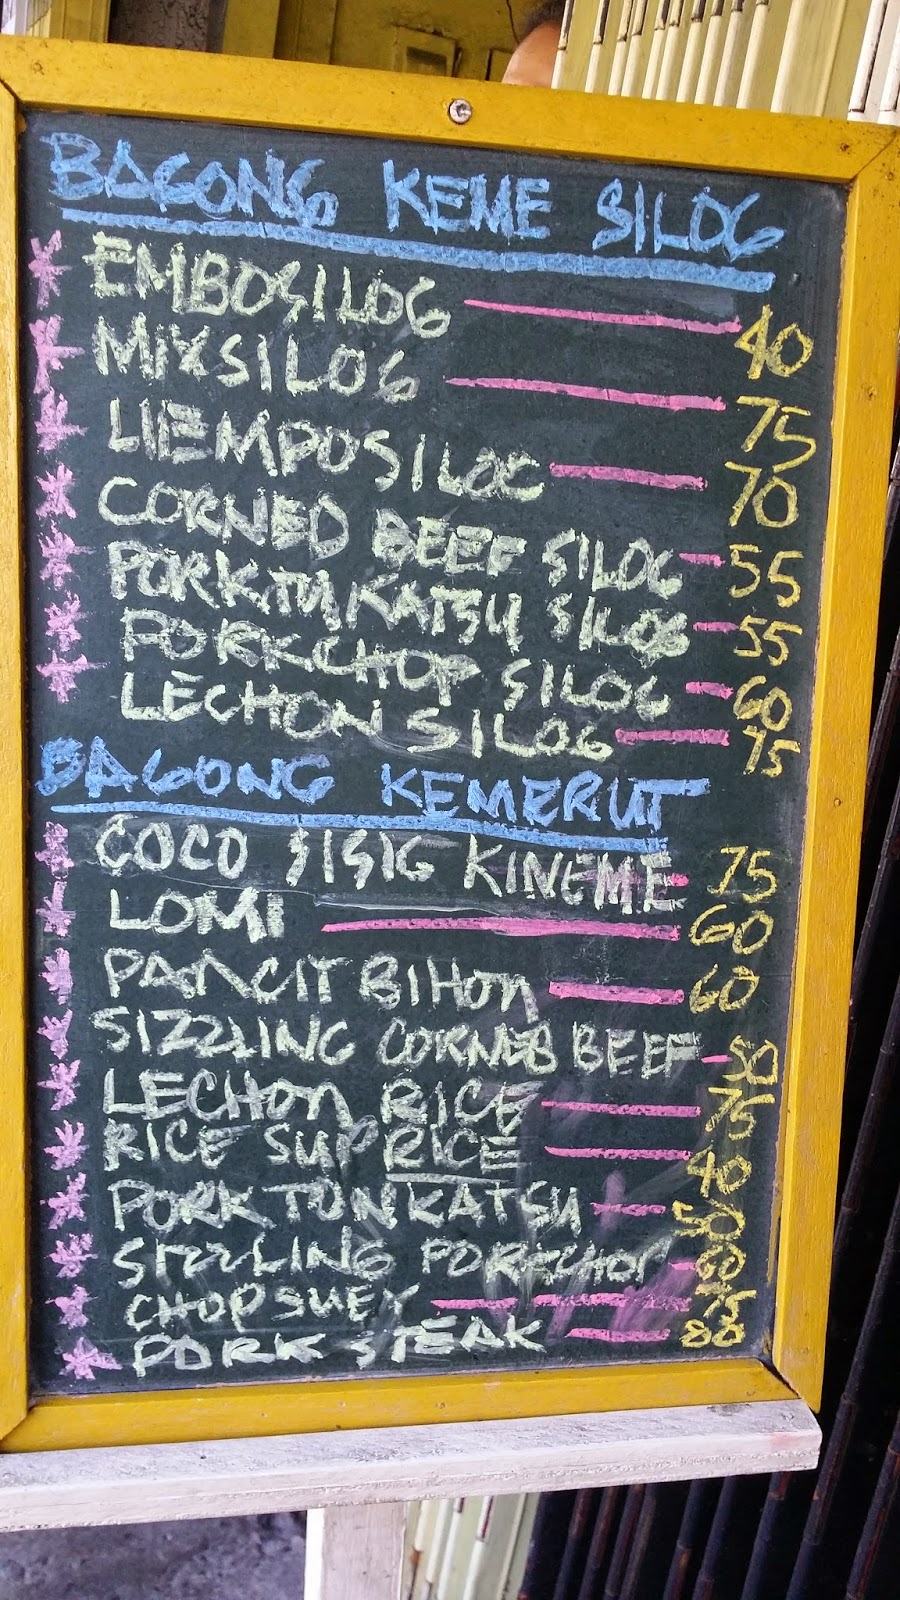 BAGONG KEME SILOG
EMBOSILOG 40
MIXSILOG 75
LIEMPOSILOG 70
CORNED BEEF SILOG 55
PORK TUNKATSU SILOG 55
PORKCHOP SILOG 60
LECHON SILOG 75
BAGONG KEMERUT
COCO SISIG KINEME 75
LOMI 60
PANCIT BIHON 60
SIZZLING CORNED BEEF 50
LECHON RICE 75
RICE SUPRICE 40
PORK TONKATSU 50
SIZZLING PORKCHOP 60
CHOPSUEY 75
PORK STEAK 80